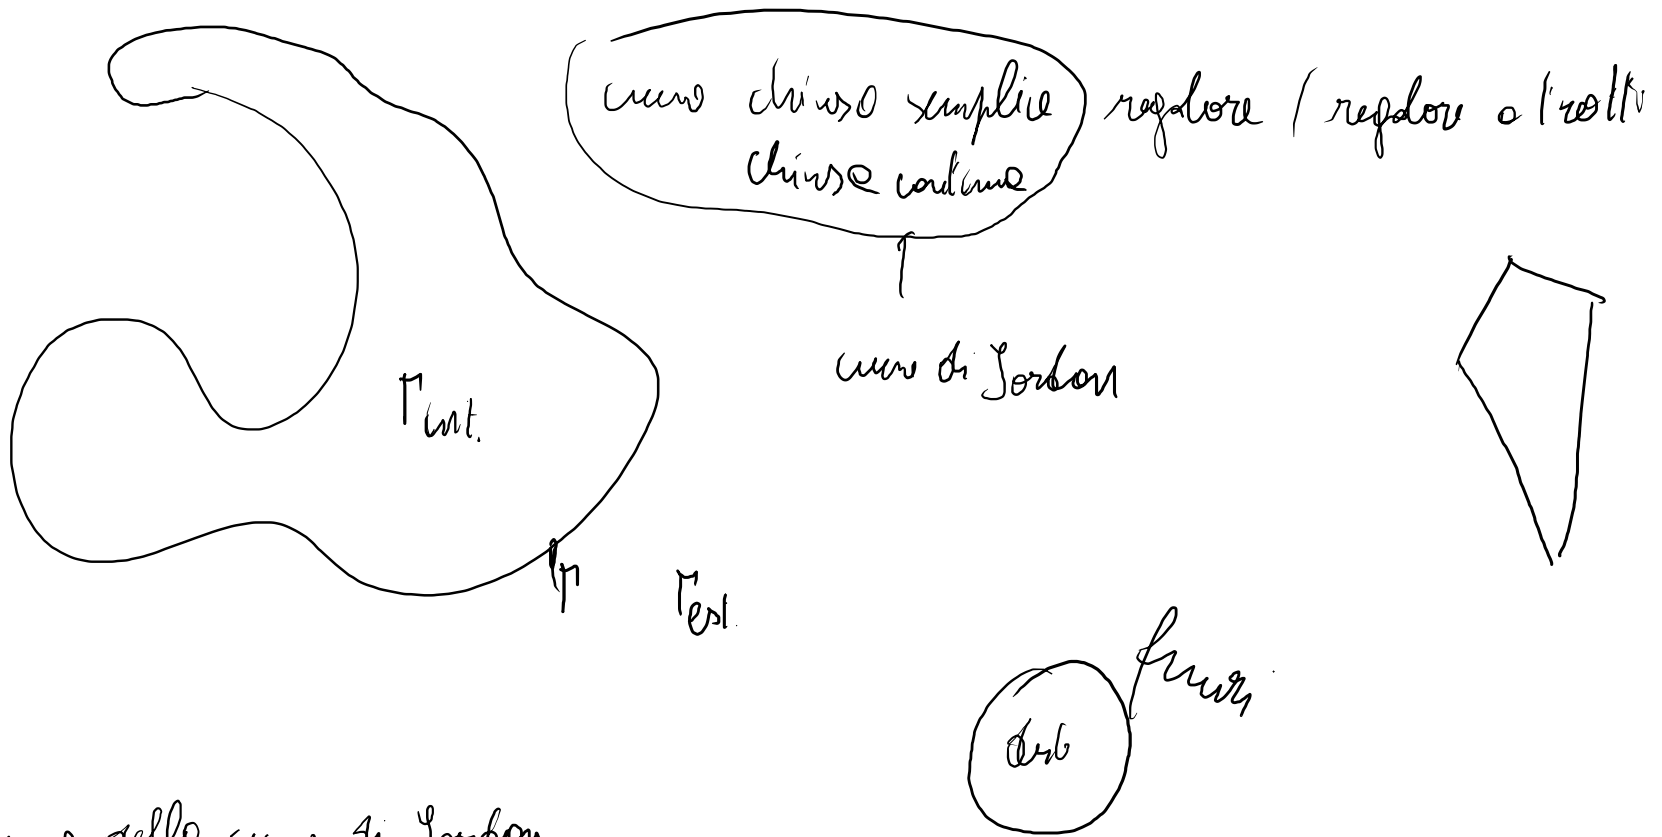 curva chiusa semplice regolare / regolare a tratti
chiusa continua
curva di Jordan
Γint.
Γ
Γest.
fuori
dentro
della curva di Jordan